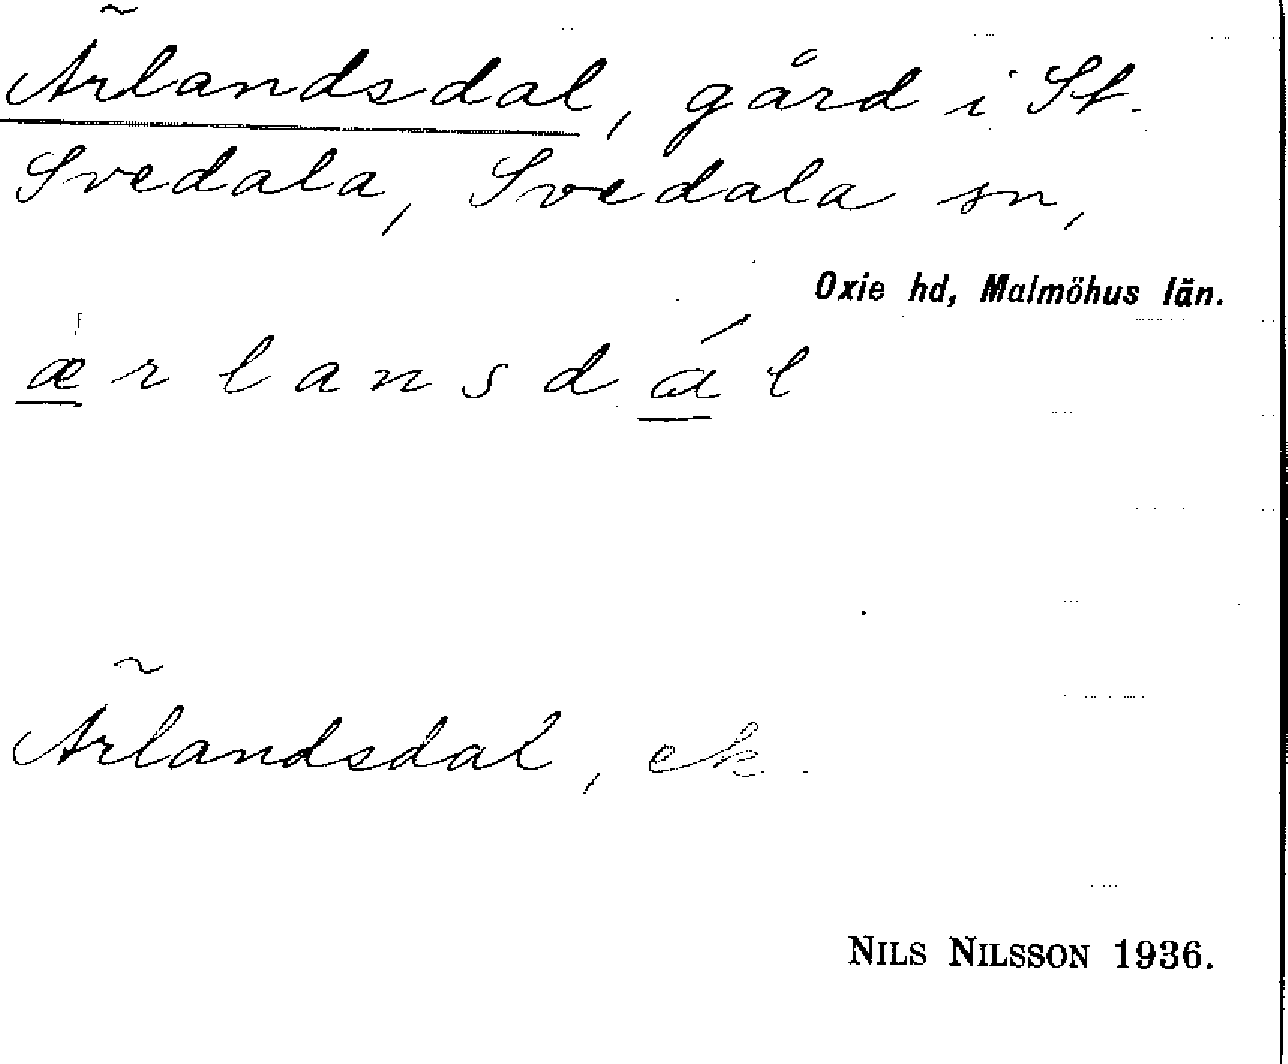 Ärlandsdal, gård i St.
Svedala, Svedala sn,
Oxie hd, Malmöhus län.
ærlansdál
Ärlandsdal, ek.
NILS NILSSON 1936.